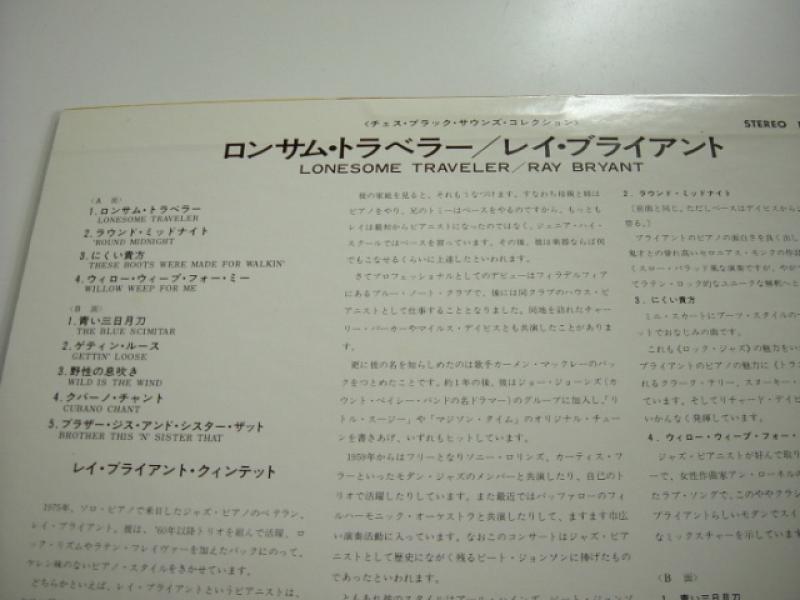 〈チェス・ブラック・サウンズ・コレクション〉
STEREO
ロンサム・トラベラー／レイ・ブライアント
LONESOME TRAVELER／RAY BRYANT
〈A 面〉
1.ロンサム・トラベラー
LONESOME TRAVELER
2.ラウンド・ミッドナイト
'ROUND MIDNIGHT
3.にくい貴方
THESE BOOTS WERE MADE FOR WALKIN'
4.ウィロー・ウィープ・フォー・ミー
WILLOW WEEP FOR ME
〈B 面〉
1.青い三日月刀
THE BLUE SCIMITAR
2.ゲティン・ルース
GETTIN' LOOSE
3.野性の息吹き
WILD IS THE WIND
4.クバーノ・チャント
CUBANO CHANT
5.ブラザー・ジス・アンド・シスター・ザット
BROTHER THIS 'N' SISTER THAT
レイ・ブライアント・クィンテット
1975年、ソロ・ピアノで来日したジャズ・ピアノのベテラン、
レイ・ブライアント。彼は、'60年以降トリオを組んで活躍、ロ
ック・リズムやラテン・フレイヴァーを加えたバックにのって、
ケレン味のないピアノ・スタイルをきかせています。
どちらかといえば、レイ・ブライアントというピアニストは、
彼の家系を見ると、それもうなづけます。すなわち母親と姉は
ピアノをやり、兄のトミーはベースをやるのですから。もっとも
レイは最初からピアニストになったのではなく、ジュニア・ハイ・
スクールではベースを習っています。その後、彼は楽器ならば何
でもこなせるくらいに上達したといわれます。
さてプロフェッショナルとしてのデビューはフィラデルフィア
にあるブルー・ノート・クラブで、後には同クラブのハウス・ピ
アニストとして仕事することとなりました。同地を訪れたチャー
リー・パーカーやマイルス・デイビスとも共演したことがありま
す。
更に彼の名を知らしめたのは歌手カーメン・マックレーのバッ
クをつとめたことです。約1年の後、彼はジョー・ジョーンズ(カ
ウント・ベイシー・バンドの名ドラマー)のグループに加入し、「リ
トル・スージー」や「マジソン・タイム」のオリジナル・チュー
ンを書きあげ、いずれもヒットしています。
1959年からはフリーとなりソニー・ロリンズ、カーティス・フ
ラーといったモダン・ジャズのメンバーと共演したり、自己のト
リオで活躍したりしています。また最近ではバッファローのフィ
ルハーモニック・オーケストラと共演したりして、ますます巾広
い演奏活動に入っています。なおこのコンサートはジャズ・ピア
ニストとして歴史にながく残るピート・ジョンソンに捧げたもの
であったといわれます。
2. ラウンド・ミッドナイト
ブライアントのピアノの面白さを良く出し
3. にくい貴方
ミニ・スカートにブーツ・スタイルの
ットでおなじみの曲です。
これも《ロック・ジャズ》の魅力をい
ブライアントのピアノの魅力に《トラン
れるクラーク・テリー、スヌーキー・
ています。そしてリチャード・デイビ
いかんなく発揮しています。
4. ウィロー・ウィープ・フォー・
ジャズ・ピアニストが好んで取り
ーで、女性作曲家アン・ローネル
たラブ・ソングで、このややクラシ
ブライアントらしいモダンでスイ
なミックスチャーを示しています
〈B 面〉
1. 青い三日月刀